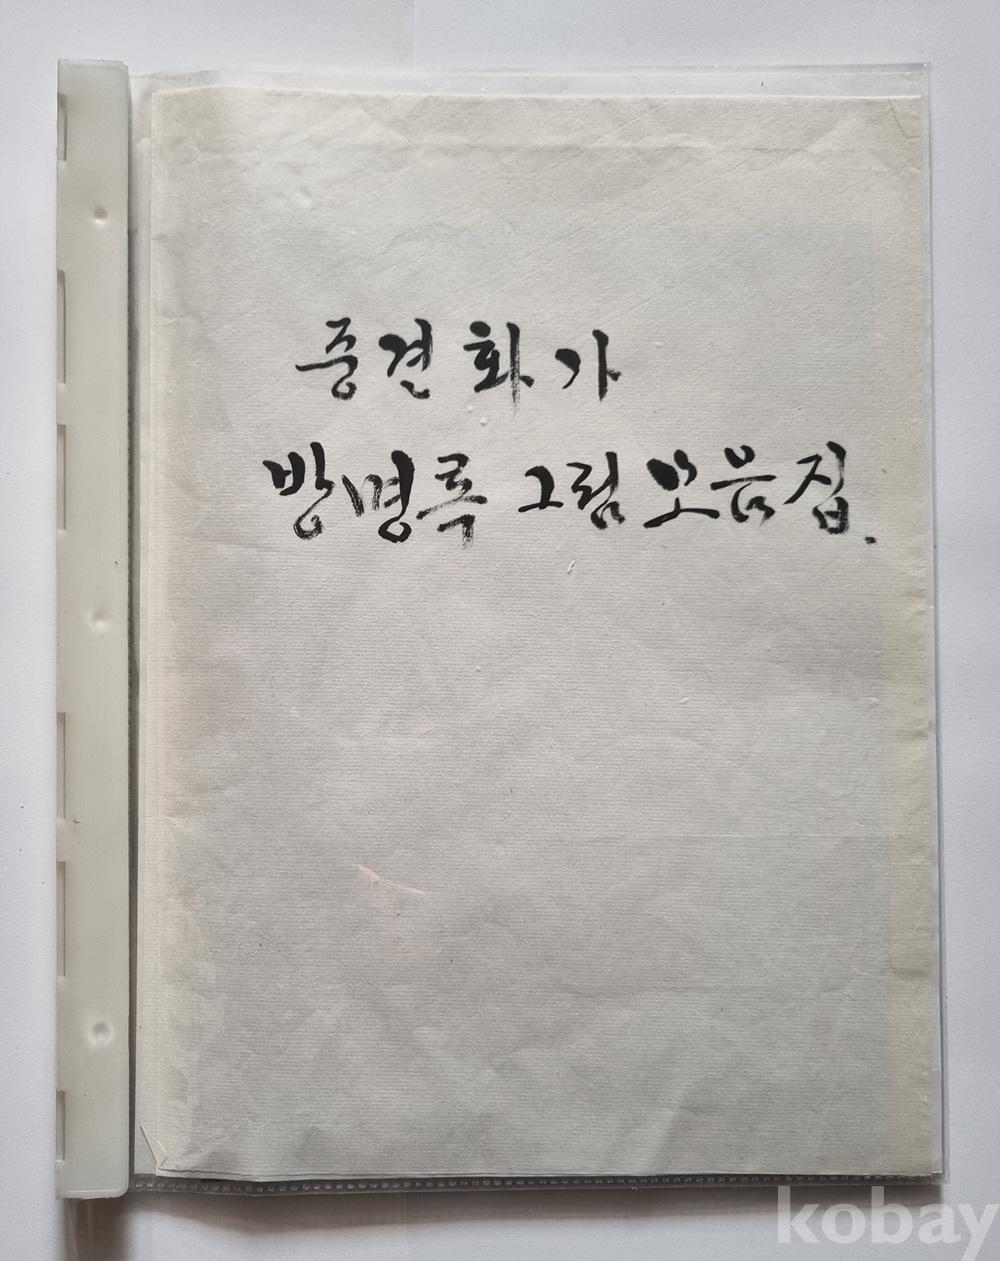 중견 화가
방명록 그림 모음집.
kobay